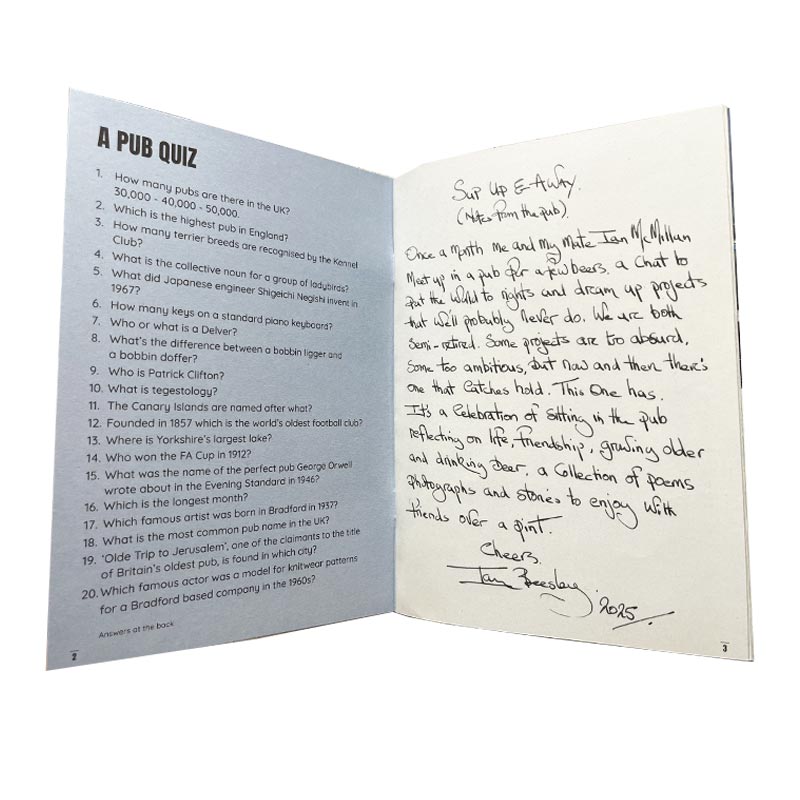 A PUB QUIZ
1. How many pubs are there in the UK?
30,000 - 40,000 - 50,000.
2. Which is the highest pub in England?
3. How many terrier breeds are recognised by the Kennel
Club?
4. What is the collective noun for a group of ladybirds?
5. What did Japanese engineer Shigeichi Negishi invent in
1967?
6. How many keys on a standard piano keyboard?
7. Who or what is a Delver?
8. What's the difference between a bobbin ligger and
a bobbin doffer?
9. Who is Patrick Clifton?
10. What is tegestology?
11. The Canary Islands are named after what?
12. Founded in 1857 which is the world's oldest football club?
13. Where is Yorkshire's largest lake?
14. Who won the FA Cup in 1912?
15. What was the name of the perfect pub George Orwell
wrote about in the Evening Standard in 1946?
16. Which is the longest month?
17. Which famous artist was born in Bradford in 1937?
18. What is the most common pub name in the UK?
19. 'Olde Trip to Jerusalem', one of the claimants to the title
of Britain's oldest pub, is found in which city?
20. Which famous actor was a model for knitwear patterns
for a Bradford based company in the 1960s?
Answers at the back
2
Sup Up & Away.
(Notes from the pub)
Once a month me and my mate Ian McMillan
meet up in a pub for a few beers. a chat to
put the world to rights and dream up projects
that we'll probably never do. We are both
semi-retired. Some projects are too absurd,
some too ambitious, but now and then there's
one that catches hold. This One has.
It's a celebration of sitting in the pub
reflecting on life, friendship, growing older
and drinking beer. a collection of poems
photographs and stories to enjoy with
friends over a pint.
Cheers.
Ian Beesley.
2025.
3